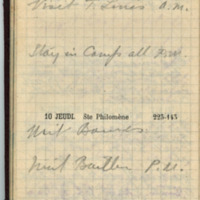 Visit T. Lines A.M.
Stay in Camp all P.M.
10 JEUDI. Ste Philomène 223-143
Visit
Visit Bailleu P.M.